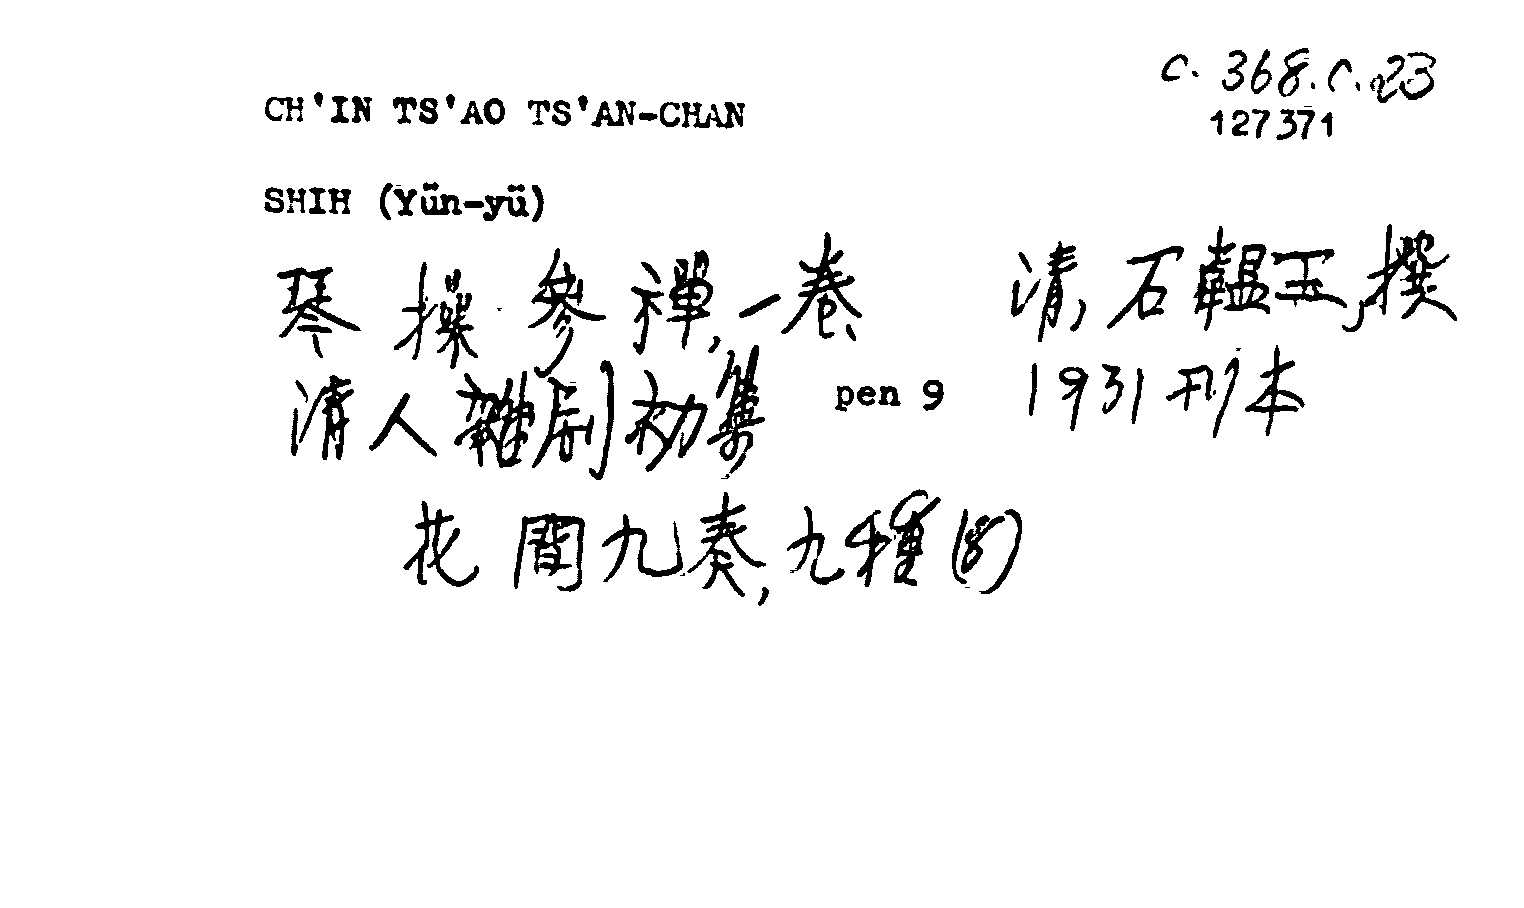 c. 368.c.23
CH'IN TS'AO TS'AN-CHAN
127371
SHIH (Yün-yü)
琴操參禪,一卷 清,石韞玉,撰
清人雜劇初集 pen 9 1931刊本
花間九奏,九種(8)